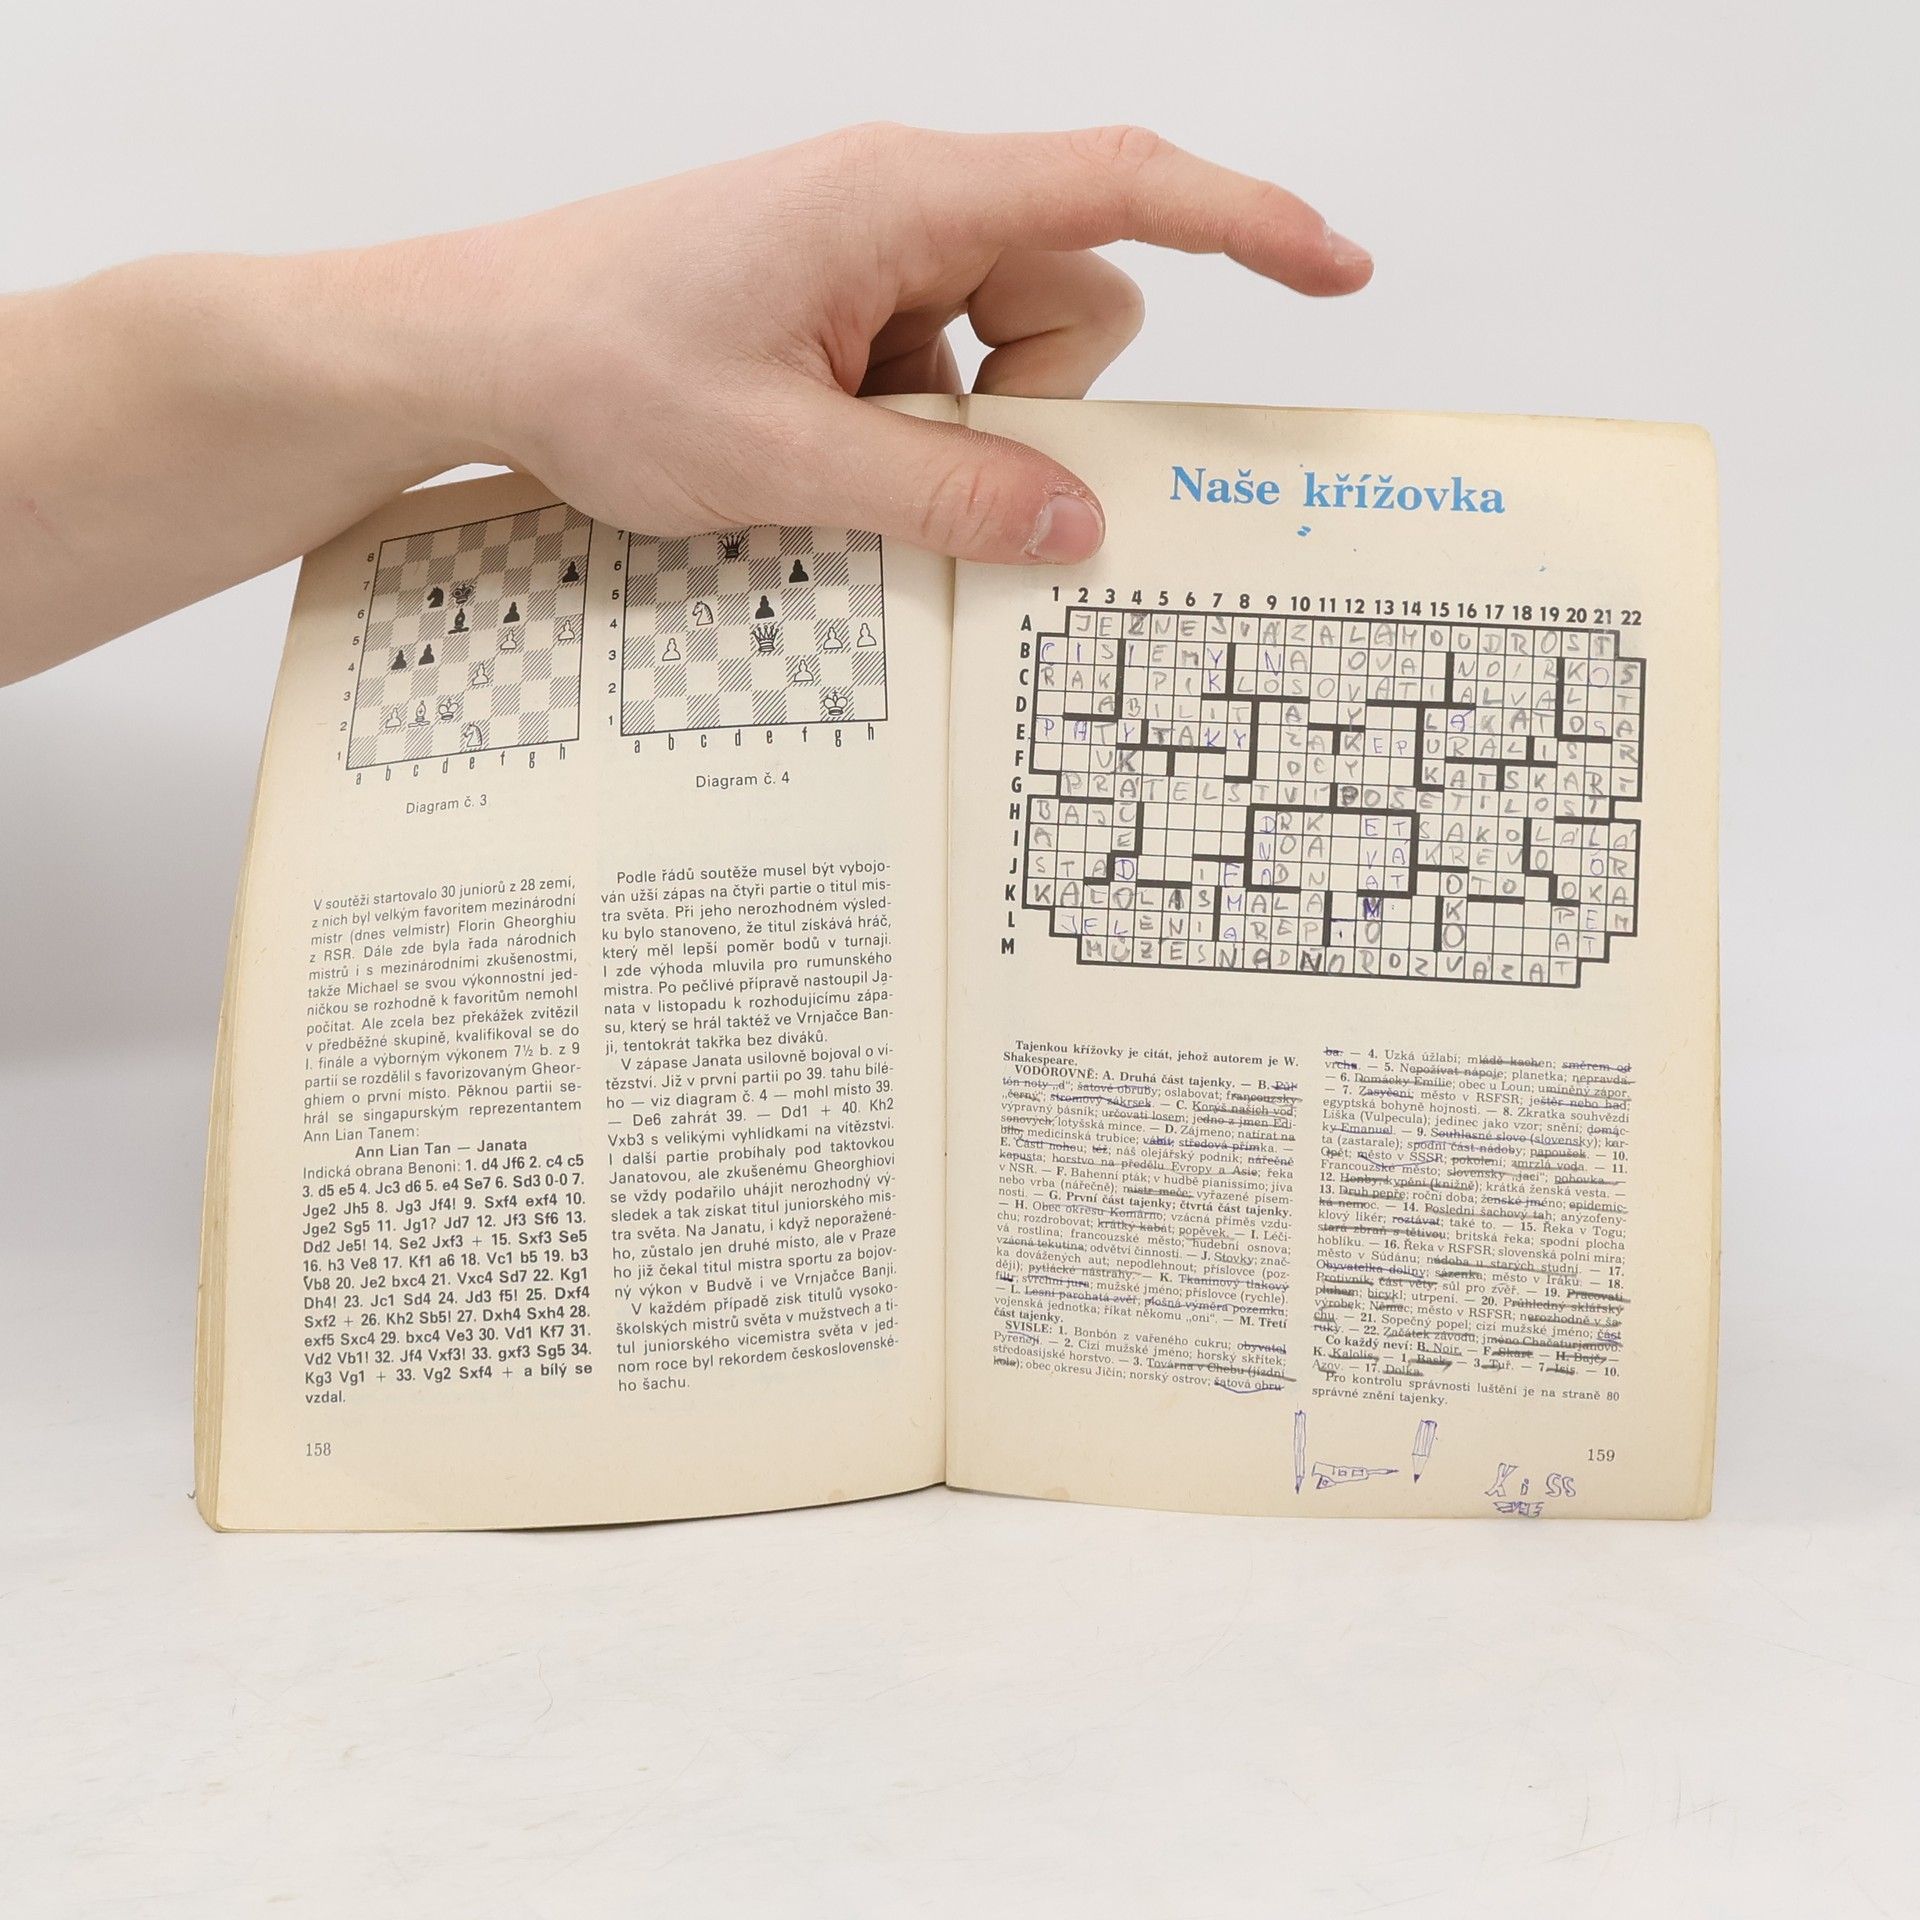 8
7
6
5
4
3
2
1
a b c d e f g h
Diagram č. 3
7
6
5
4
3
2
1
a b c d e f g h
Diagram č. 4
V soutěži startovalo 30 juniorů z 28 zemí,
z nich byl velkým favoritem mezinárodní
mistr (dnes velmistr) Florin Gheorghiu
z RSR. Dále zde byla řada národních
mistrů i s mezinárodními zkušenostmi,
takže Michael se svou výkonnostní jed-
ničkou se rozhodně k favoritům nemohl
počítat. Ale zcela bez překážek zvítězil
v předběžné skupině, kvalifikoval se do
I. finále a výborným výkonem 7½ b. z 9
partií se rozdělil s favorizovaným Gheor-
ghiem o první místo. Pěknou partii se-
hrál se singapurským reprezentantem
Ann Lian Tanem:
Ann Lian Tan — Janata
Indická obrana Benoni: 1. d4 Jf6 2. c4 c5
3. d5 e5 4. Jc3 d6 5. e4 Se7 6. Sd3 0-0 7.
Jge2 Jh5 8. Jg3 Jf4! 9. Sxf4 exf4 10.
Jge2 Sg5 11. Jg1? Jd7 12. Jf3 Sf6 13.
Dd2 Je5! 14. Se2 Jxf3 + 15. Sxf3 Se5
16. h3 Ve8 17. Kf1 a6 18. Vc1 b5 19. b3
Vb8 20. Je2 bxc4 21. Vxc4 Sd7 22. Kg1
Dh4! 23. Jc1 Sd4 24. Jd3 f5! 25. Dxf4
Sxf2 + 26. Kh2 Sb5! 27. Dxh4 Sxh4 28.
exf5 Sxc4 29. bxc4 Ve3 30. Vd1 Kf7 31.
Vd2 Vb1! 32. Jf4 Vxf3! 33. gxf3 Sg5 34.
Kg3 Vg1 + 33. Vg2 Sxf4 + a bílý se
vzdal.
158
Podle řádů soutěže musel být vybojo-
ván užší zápas na čtyři partie o titul mis-
tra světa. Při jeho nerozhodném výsled-
ku bylo stanoveno, že titul získává hráč,
který měl lepší poměr bodů v turnaji.
I zde výhoda mluvila pro rumunského
mistra. Po pečlivé přípravě nastoupil Ja-
nata v listopadu k rozhodujícímu zápa-
su, který se hrál taktéž ve Vrnjačce Ban-
ji, tentokrát takřka bez diváků.
V zápase Janata usilovně bojoval o ví-
tězství. Již v první partii po 39. tahu bílé-
ho — viz diagram č. 4 — mohl místo 39.
— De6 zahrát 39. — Dd1 + 40. Kh2
Vxb3 s velikými vyhlídkami na vítězství.
I další partie probíhaly pod taktovkou
Janatovou, ale zkušenému Gheorghiovi
se vždy podařilo uhájit nerozhodný vý-
sledek a tak získat titul juniorského mis-
tra světa. Na Janatu, i když neporažené-
ho, zůstalo jen druhé místo, ale v Praze
ho již čekal titul mistra sportu za bojov-
ný výkon v Budvě i ve Vrnjačce Banji.
V každém případě zisk titulů vysoko-
školských mistrů světa v mužstvech a ti-
tul juniorského vicemistra světa v jed-
nom roce byl rekordem československé-
ho šachu.
Naše křížovka
1 2 3 4 5 6 7 8 9 10 11 12 13 14 15 16 17 18 19 20 21 22
A
B
C
D
E
F
G
H
I
J
K
L
M
Tajenkou křížovky je citát, jehož autorem je W.
Shakespeare.
VODOROVNĚ: A. Druhá část tajenky. — B. Půl-
tón noty „d"; šatové obruby; oslabovat; francouzsky
„černý"; stromový zákrsek. — C. Korýš našich vod;
výpravný básník; určovati losem; jedno z jmen Edi-
sonových; lotyšská mince. — D. Zájmeno; natírat na
bílo; medicinská trubice; vábit; středová přímka. —
E. Části nohou; též; náš olejářský podnik; nářečně
kapusta; horstvo na předělu Evropy a Asie; řeka
v NSR. — F. Bahenní pták; v hudbě pianissimo; jíva
nebo vrba (nářečně); mistr meče; vyřazené písem-
nosti. — G. První část tajenky; čtvrtá část tajenky.
— H. Obec okresu Komárno; vzácná příměs vzdu-
chu; rozdrobovat; krátký kabát; popěvek. — I. Léči-
vá rostlina; francouzské město; hudební osnova;
vzácná tekutina; odvětví činnosti. — J. Stovky; znač-
ka dovážených aut; nepodlehnout; příslovce (poz-
ději); pytlácké nástrahy. — K. Tkaninový tlakový
filtr; svrchní jura; mužské jméno; příslovce (rychle).
— L. Lesní parohatá zvěř; plošná výměra pozemku;
vojenská jednotka; říkat někomu „oni". — M. Třetí
část tajenky.
SVISLE: 1. Bonbón z vařeného cukru; obyvatel
Pyrenejí. — 2. Cizí mužské jméno; horský skřítek;
středoasijské horstvo. — 3. Továrna v Chebu (jízdní
kola); obec okresu Jičín; norský ostrov; šatová obru-
ba. — 4. Uzká úžlabí; mládě kachen; směrem od
vrchu. — 5. Nepožívat nápoje; planetka; nepravda.
— 6. Domácky Emilie; obec u Loun; umíněný zápor.
— 7. Zasyčení; město v RSFSR; ještěr nebo had;
egyptská bohyně hojnosti. — 8. Zkratka souhvězdí
Liška (Vulpecula); jedinec jako vzor; snění; domác-
ky Emanuel. — 9. Souhlasné slovo (slovensky); kar-
ta (zastarale); spodní část nádoby; papoušek. — 10.
Opět; město v SSSR; pokolení; zmrzlá voda. — 11.
Francouzské město; slovensky „jací"; pohovka. —
12. Honby; kypění (knižně); krátká ženská vesta. —
13. Druh pepře; roční doba; ženské jméno; epidemic-
ká nemoc. — 14. Poslední šachový tah; anýzofeny-
klový likér; roztávat; také to. — 15. Řeka v Togu;
stará zbraň s tětivou; britská řeka; spodní plocha
hoblíku. — 16. Řeka v RSFSR; slovenská polní míra;
město v Súdánu; nádoba u starých studní. — 17.
Obyvatelka doliny; sázenka; město v Iráku. — 18.
Protivník; část věty; sůl pro zvěř. — 19. Pracovati
pluhem; bicykl; utrpení. — 20. Průhledný sklářský
výrobek; Němec; město v RSFSR; nerozhodně v ša-
chu. — 21. Sopečný popel; cizí mužské jméno; část
ruky. — 22. Začátek závodu; jméno Chačaturjanovo.
Co každý neví: B. Noir. — F. Skart. — H. Bajč. —
K. Kalolis. — 1. Bask. — 3. Tuř. — 7. Isis. — 10.
Azov. — 17. Dolka.
Pro kontrolu správnosti luštění je na straně 80
správné znění tajenky.
159
KiSS